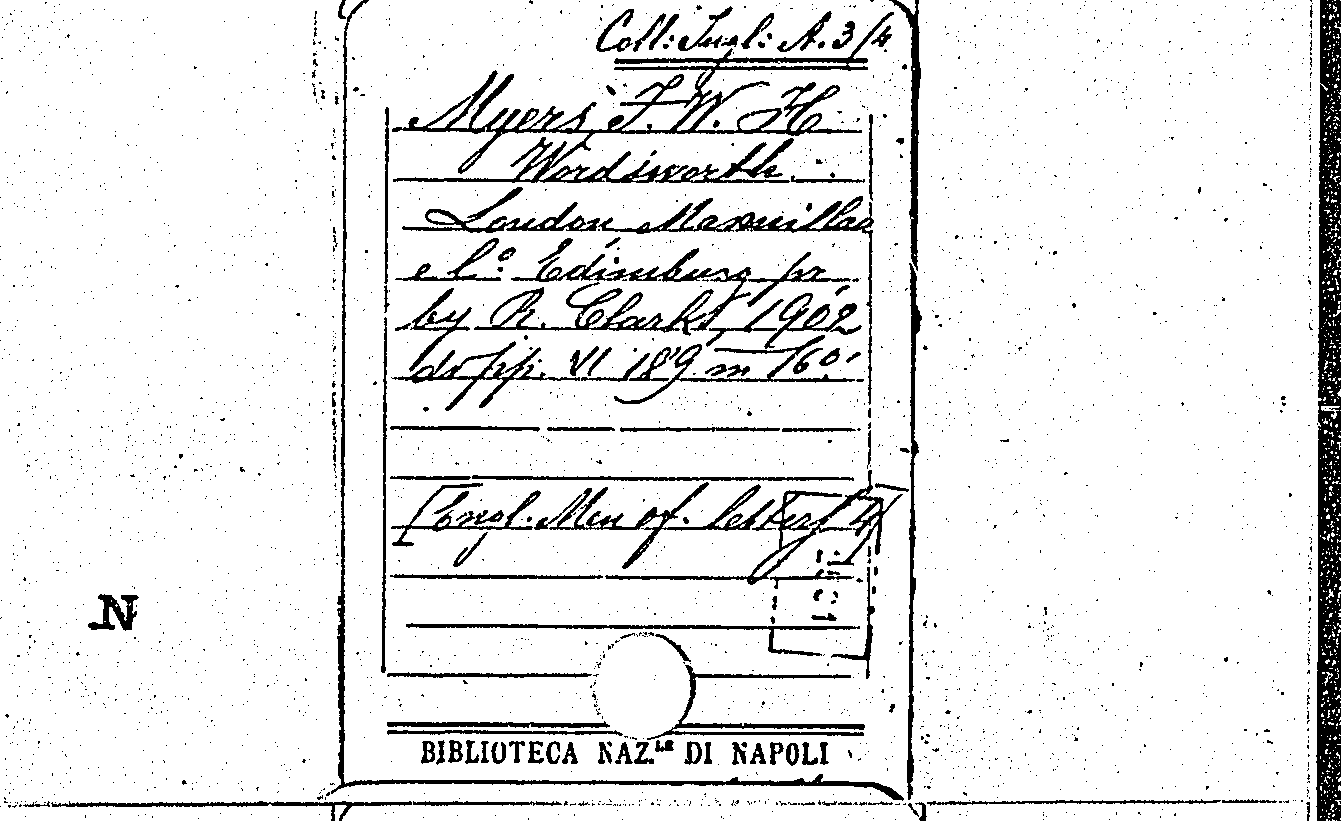 Coll: Ingl: A. 3/4
Myers, F. W. H.
Wordsworth
London Macmillan
e C.º Edimburg pr
by R. Clark, 1902
dr pp. VI 189 in 16º.
[Engl. Men of letters 4]
N
BIBLIOTECA NAZ.LE DI NAPOLI